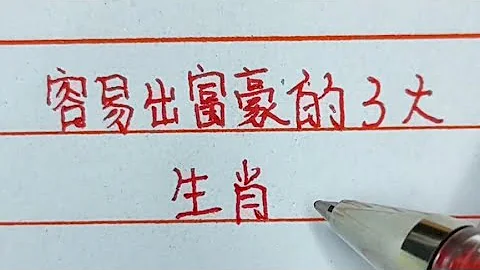 容易出富豪的3大
生肖